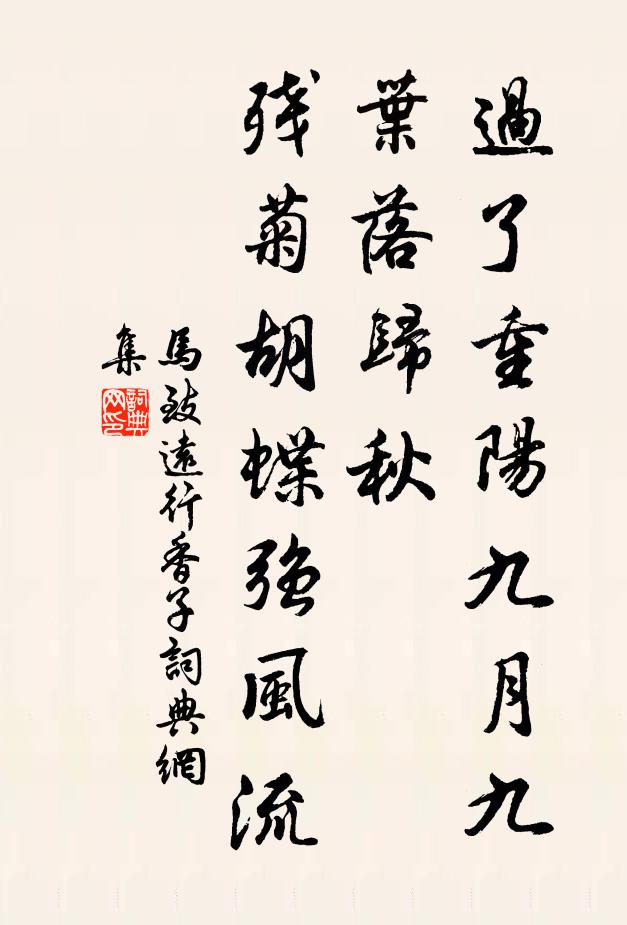 過了重陽九月九
葉落歸秋
残菊胡蝶強風流
馬致遠行香子詞典網
集
詞典
网印